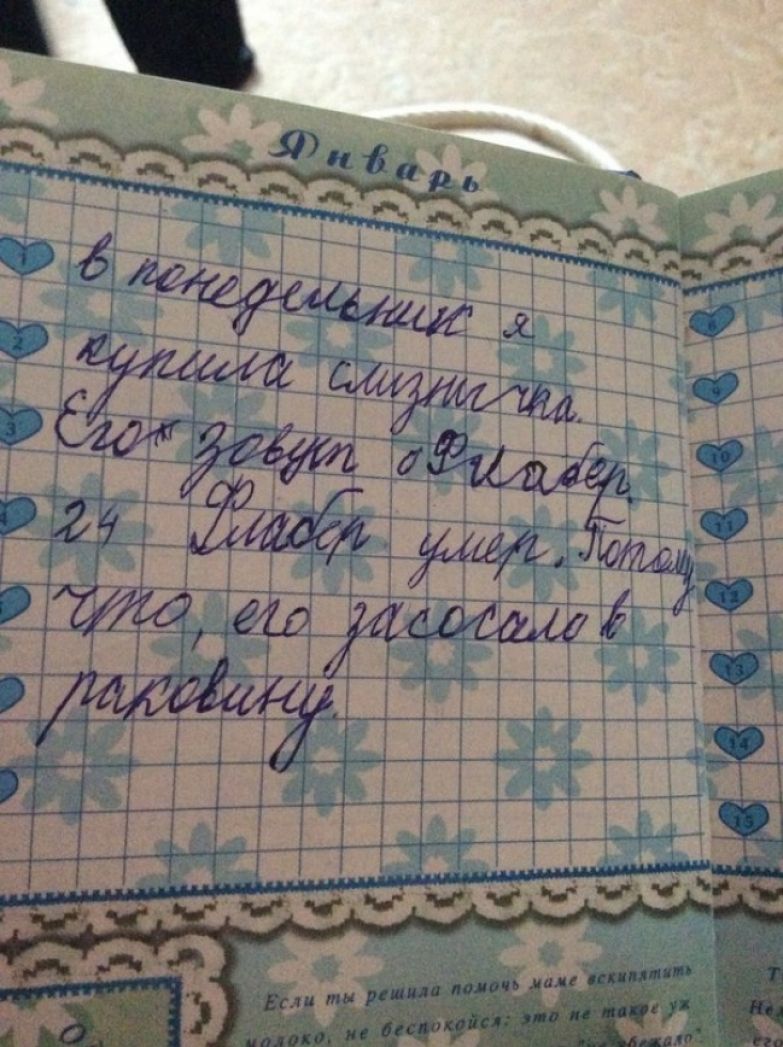 Январь
1
в понедельник я
2
купила слизничка.
3
Его зовут Флабер.
4
24 Флабер умер. Потому
что, его засосало в
раковину.
8
9
10
11
12
13
14
15
Если ты решила помочь маме вскипятить
молоко, не беспокойся: это не такое уж